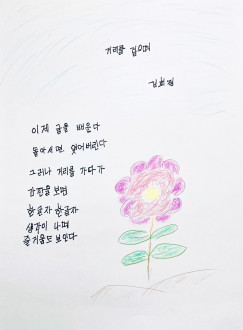 거리를 걸으며
김희제
이제 글을 배운다
돌아서면 잊어버린다
그러나 거리를 가다가
간판을 보면
한글자 한글자
생각이 나며
즐거움도 보았다